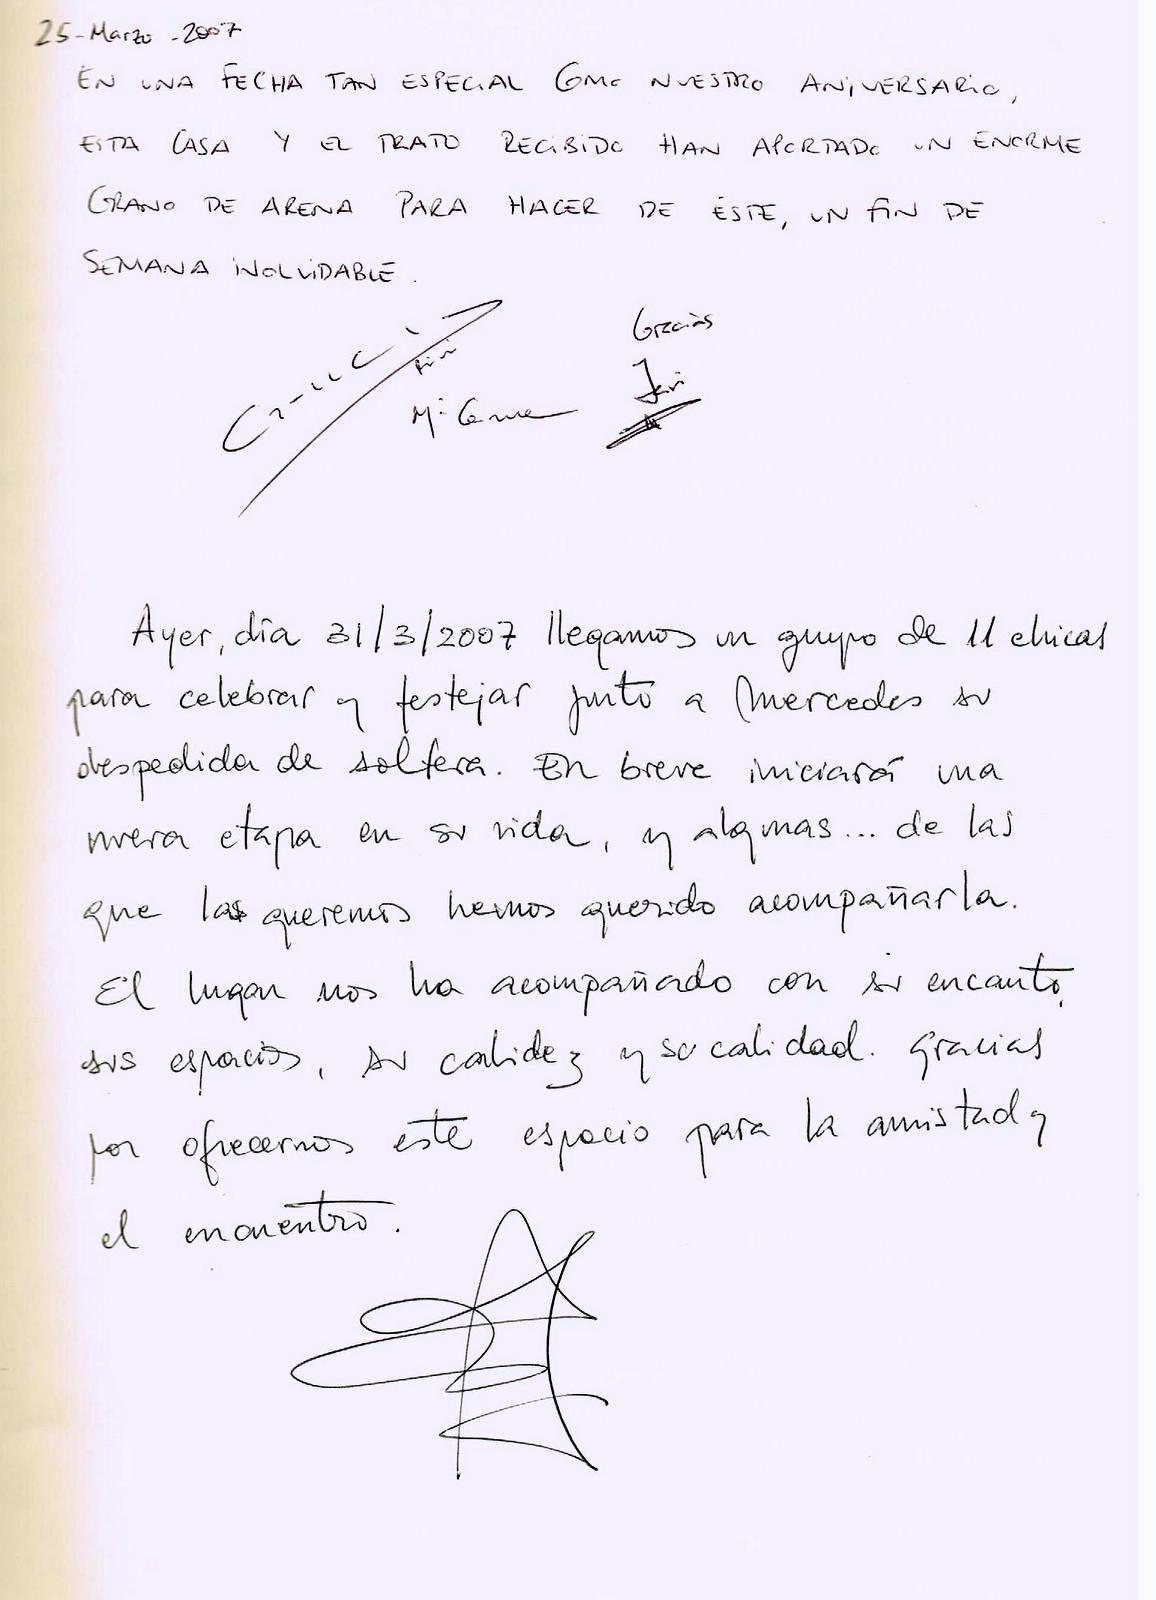 25-Marzo-2007
EN UNA FECHA TAN ESPECIAL COMO NUESTRO ANIVERSARIO,
ESTA CASA Y EL TRATO RECIBIDO HAN APORTADO UN ENORME
GRANO DE ARENA PARA HACER DE ÉSTE, UN FIN DE
SEMANA INOLVIDABLE.
Gracias
Javi
Mª Carmen
Ayer, día 31/3/2007 llegamos un grupo de 11 chicas
para celebrar y festejar junto a Mercedes su
despedida de soltera. En breve iniciará una
nueva etapa en su vida, y algunas... de las
que las queremos hemos querido acompañarla.
El lugar nos ha acompañado con su encanto,
sus espacios, su calidez y su calidad. Gracias
por ofrecernos este espacio para la amistad y
el encuentro.